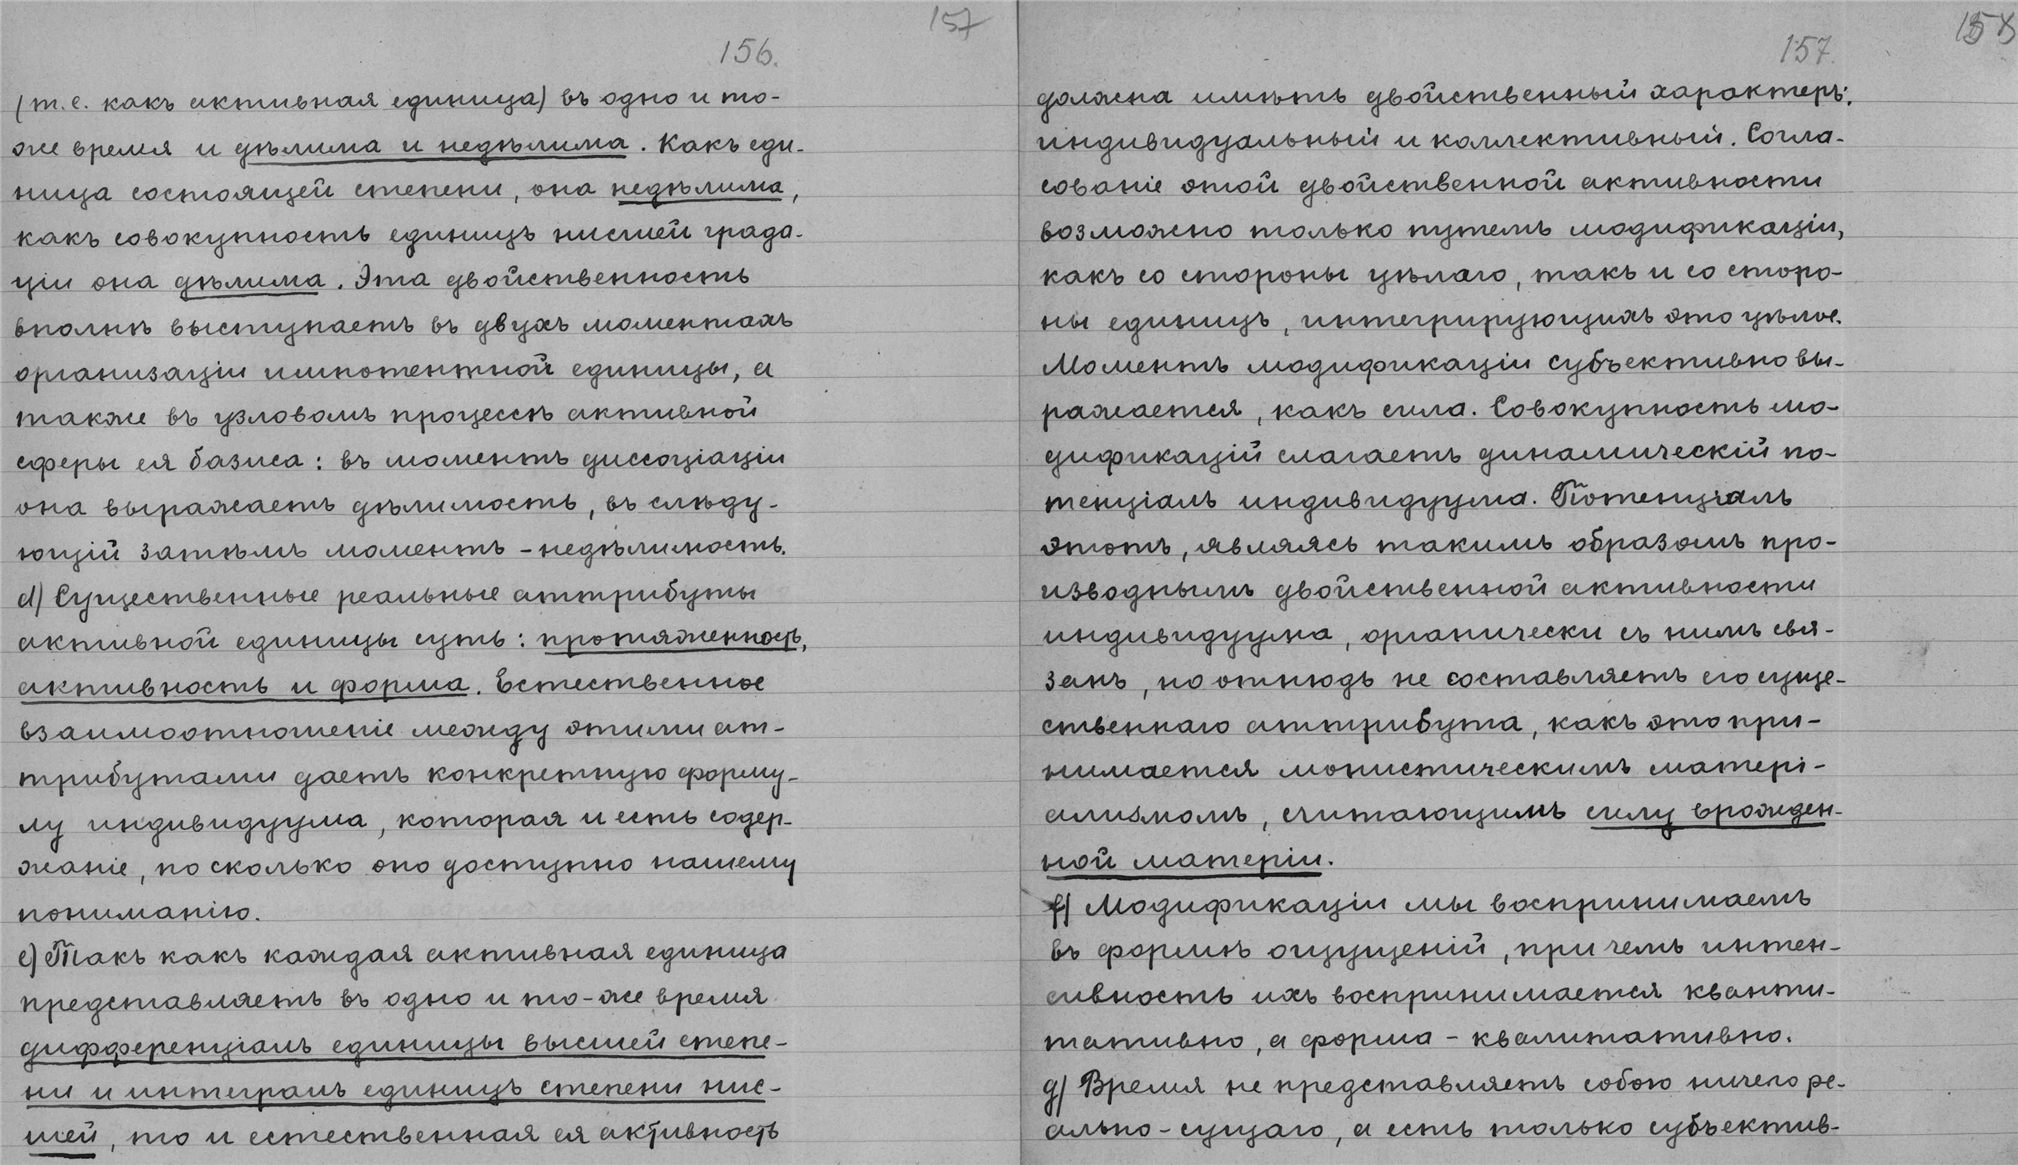 157
156.
(т.е. какъ активная единица) въ одно и то-
же время и дѣлима и недѣлима. Какъ еди-
ница состоящей степени, она недѣлима,
какъ совокупность единицъ нисшей града-
ціи она дѣлима. Эта двойственность
вполнѣ выступаетъ въ двухъ моментахъ
организаціи импотентной единицы, а
также въ узловомъ процессѣ активной
сферы ея базиса: въ моментъ диссоціаціи
она выражаетъ дѣлимость, въ слѣду-
ющій затѣмъ моментъ - недѣлимость.
d) Существенные реальные аттрибуты
активной единицы суть: протяженность,
активность и форма. Естественное
взаимоотношеніе между этими ат-
трибутами даетъ конкретную форму-
лу индивидуума, которая и есть содер-
жаніе, по сколько оно доступно нашему
пониманію.
e) Такъ какъ каждая активная единица
представляетъ въ одно и то-же время
дифференціалъ единицы высшей степе-
ни и интегралъ единицъ степени нис-
шей, то и естественная ея активность
158
157.
должна имѣть двойственный характеръ:
индивидуальный и коллективный. Согла-
сованіе этой двойственной активности
возможно только путемъ модификаціи,
какъ со стороны цѣлаго, такъ и со сторо-
ны единицъ, интегрирующихъ это цѣлое.
Моментъ модификаціи субъективно вы-
ражается, какъ сила. Совокупность мо-
дификацій слагаетъ динамическій по-
тенціалъ индивидуума. Потенціалъ
этотъ, являясь такимъ образомъ про-
изводнымъ двойственной активности
индивидуума, органически съ нимъ свя-
занъ, но отнюдь не составляетъ его суще-
ственнаго аттрибута, какъ это при-
нимается монистическимъ матері-
ализмомъ, считающимъ силу врожден-
ной матеріи.
f) Модификаціи мы воспринимаемъ
въ формѣ ощущеній, при чемъ интен-
сивность ихъ воспринимается кванти-
тативно, а форма - квалитативно.
g) Время не представляетъ собою ничего ре-
ально-сущаго, а есть только субъектив-